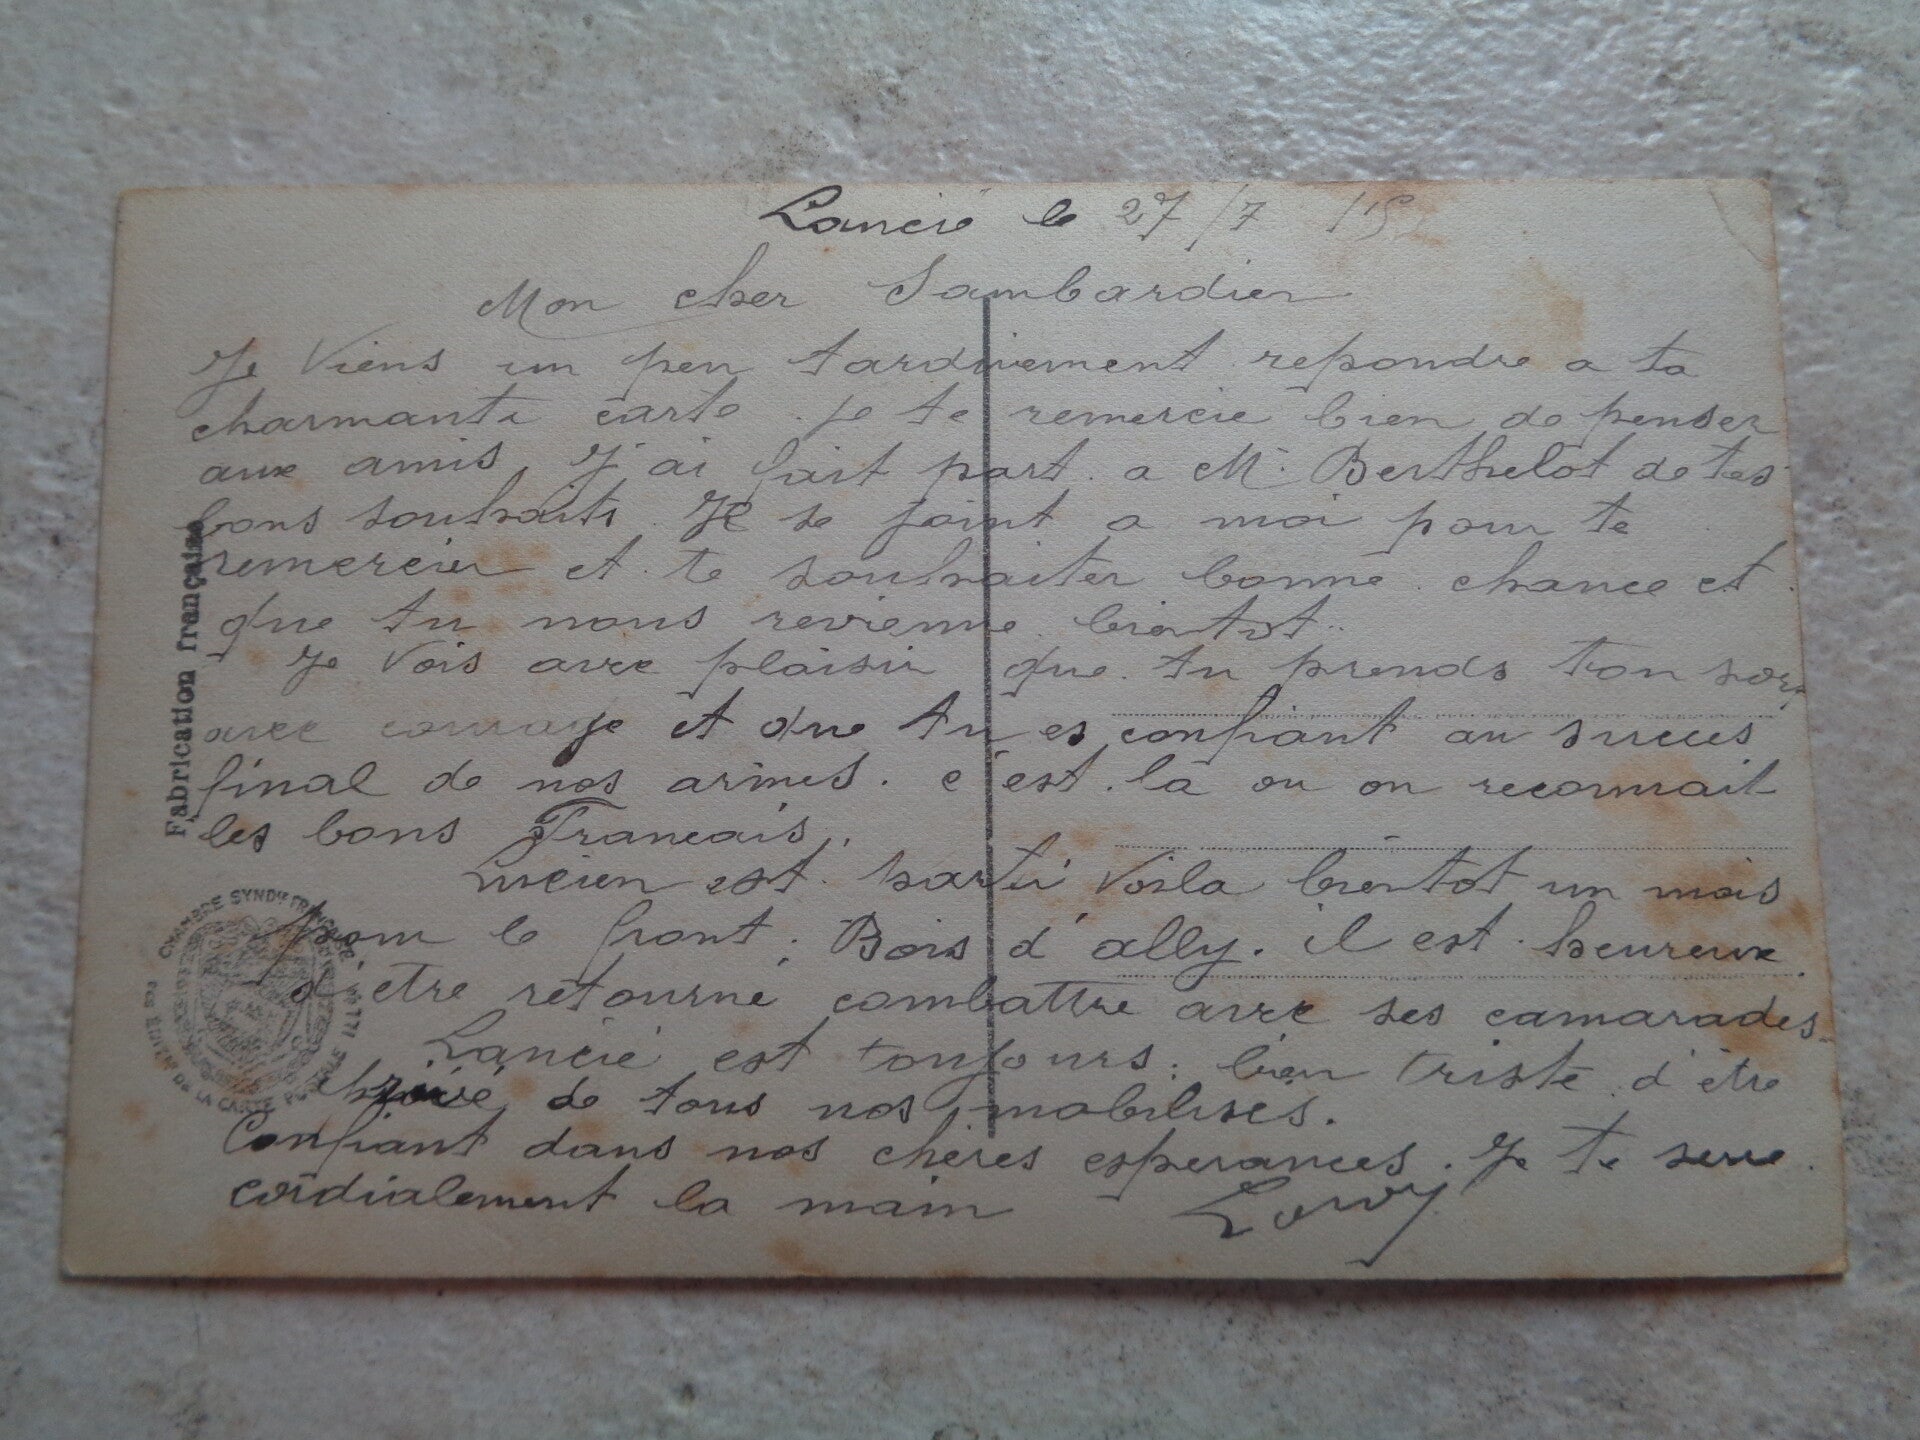 Lancié le 27/7 /15
Mon cher Sambardier
Je Viens un peu tardivement repondre a ta
charmante carte. je te remercie bien de penser
aux amis, J'ai fait part a M. Berthelot de tes
bons souhaits. Il se joint a moi pour te
remercier et te souhaiter bonne chance et
que tu nous revienne bientot..
Je Vois avec plaisir que tu prends ton sort
avec courage et que tu es confiant au succes
final de nos armes. c'est la ou on reconnait
les bons Francais.
Lucien est parti Voila bientot un mois
pour le front. Bois d'ally. il est heureux
d'etre retourné combattre avec ses camarades
Lancié est toujours bien triste d'être
privé de tous nos mobilisés.
Confiant dans nos chères esperances. Je te serre
cordialement la main
Fabrication française
CHAMBRE SYNDle FRANÇAISE
DE LA CARTE POSTALE